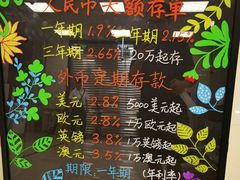 人民币大额存单
一年期1.9% 二年期2.15%
三年期2.65% 20万起存
外币定期存款
美元 2.8% 5000美元起
欧元 2.8% 1万欧元起
英镑 3.8% 1万英镑起
澳元 3.5% 1万澳元起
期限:一年期 (年利率)